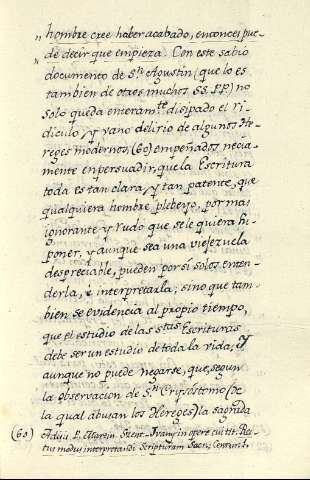 „ hombre cree haber acabado, entonces pue-
„ de decir que empieza. Con este sabio
documento de Sn. Agustin (que lo es
tambien de otros muchos SS. PP.) no
solo queda enteramte. disipado el ri-
diculo, y vano delirio de algunos He-
reges modernos, (60) empeñados necia-
mente en persuadir, que la Escritura
toda es tan clara, y tan patente, que
qualquiera hombre plebeyo, por mas
ignorante y rudo que se le quiera su-
poner, y aunque sea una viejezuela
despreciable, pueden por sí solos enten-
derla, è interpretarla; sino que tam-
bien se evidencia al propio tiempo,
que el estudio de las stas. Escrituras
debe ser un estudio de toda la vida. Y
aunque no puede negarse, que, segun
la observacion de Sn. Crysostomo (de
la qual abusan los Hereges) la sagrada
(60) P. Martin in opere cui tit. Rec-
tus modus interpretandi Scripturam Sacr.